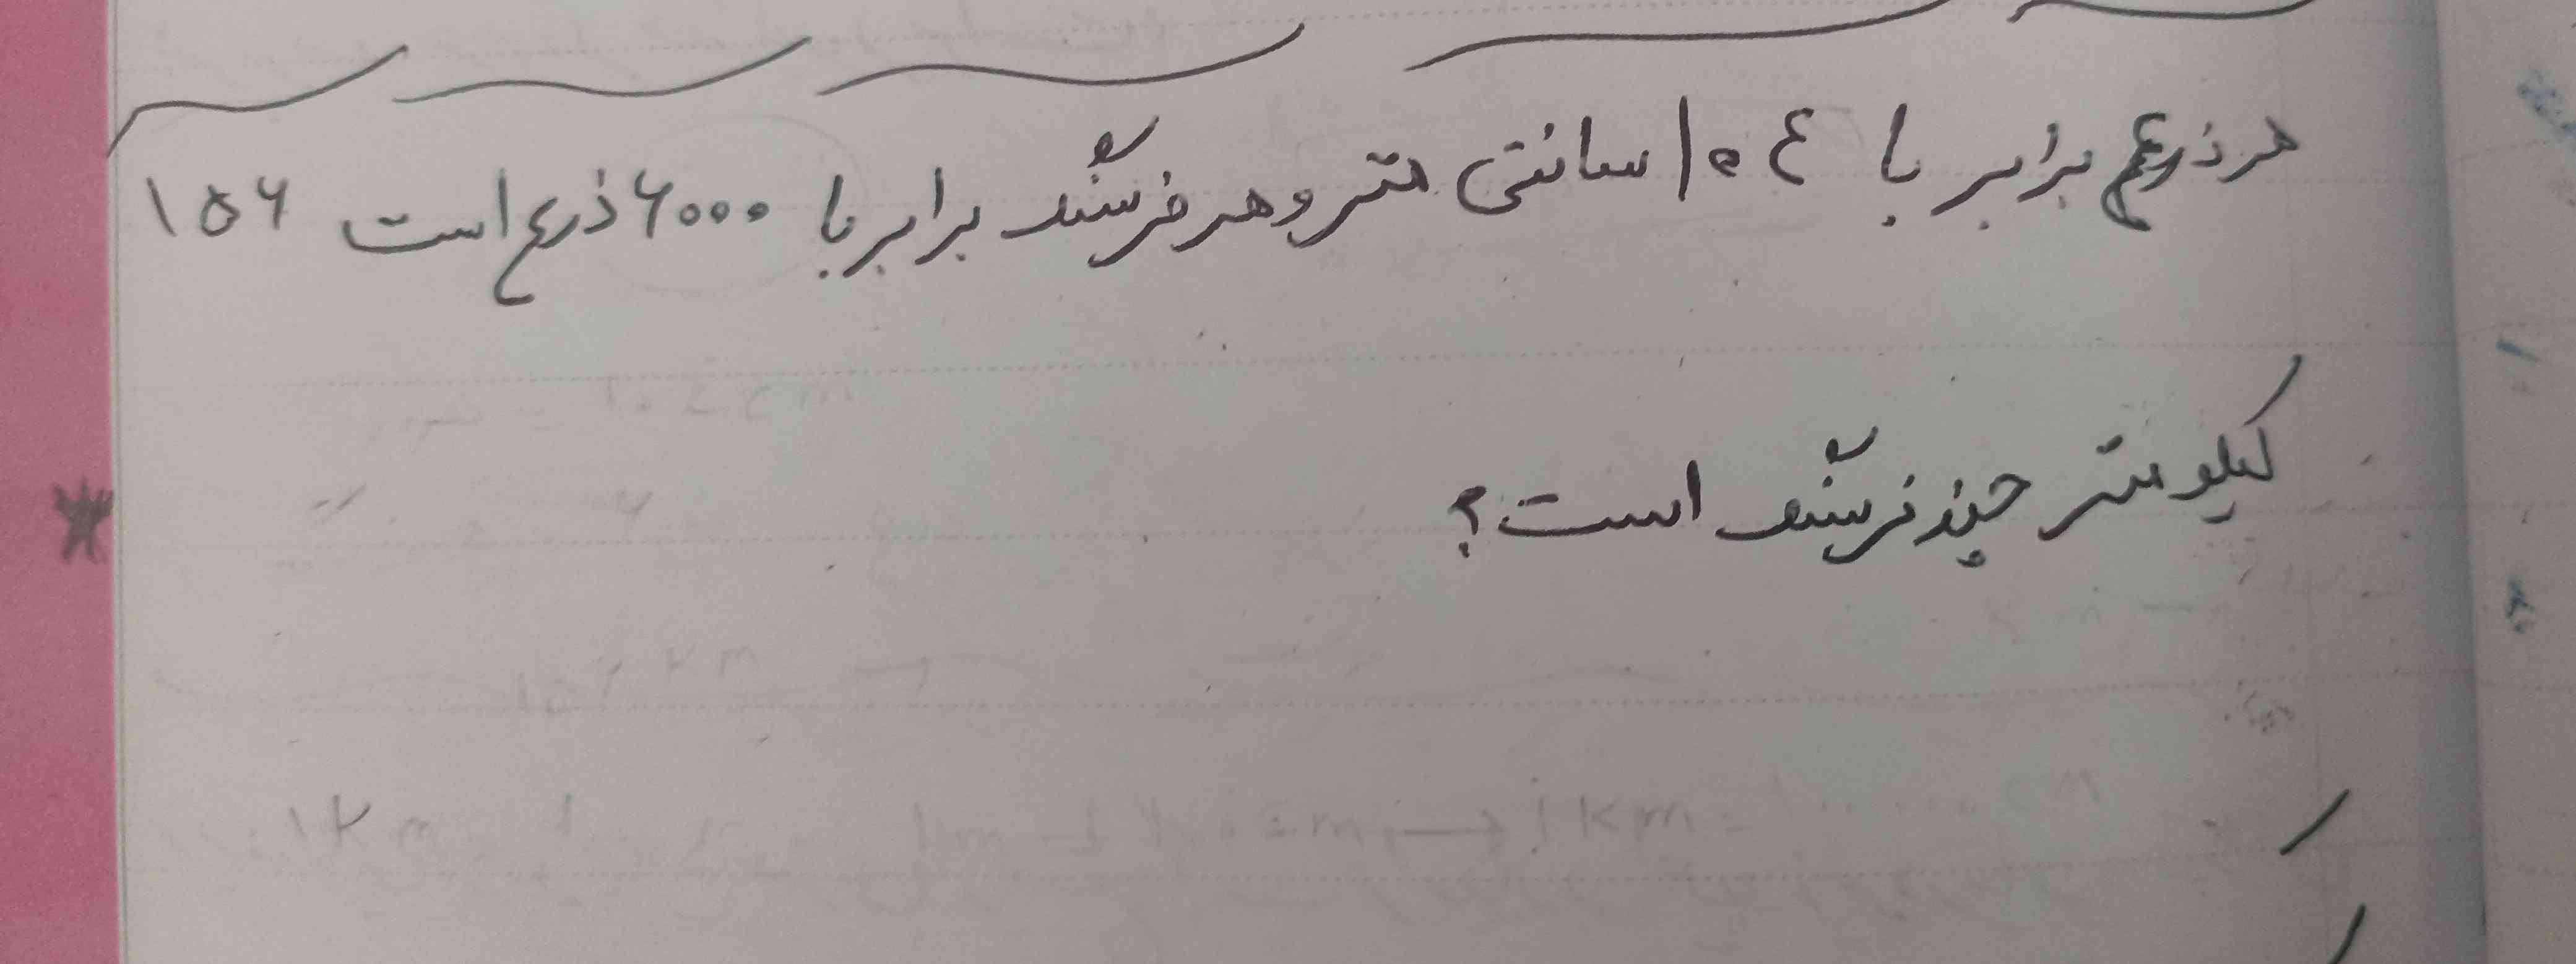 هر ذرع برابر با ۱۰۴ سانتی متر و هر فرسنگ برابر با ۶۰۰۰ ذرع است ۱۵۶
کیلومتر چند فرسنگ است؟